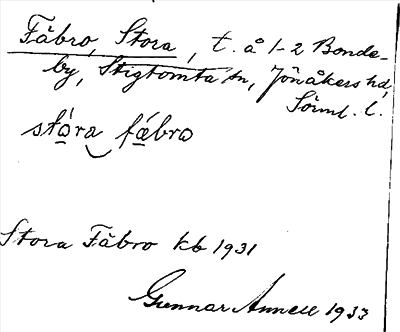 Fäbro, Stora, t. å 1-2 Bonde-
by, Stigtomta sn, Jönåkers hd,
Sörml. l.
stɷ́ra fä́bro
Stora Fäbro kb 1931
Gunnar Annell 1933